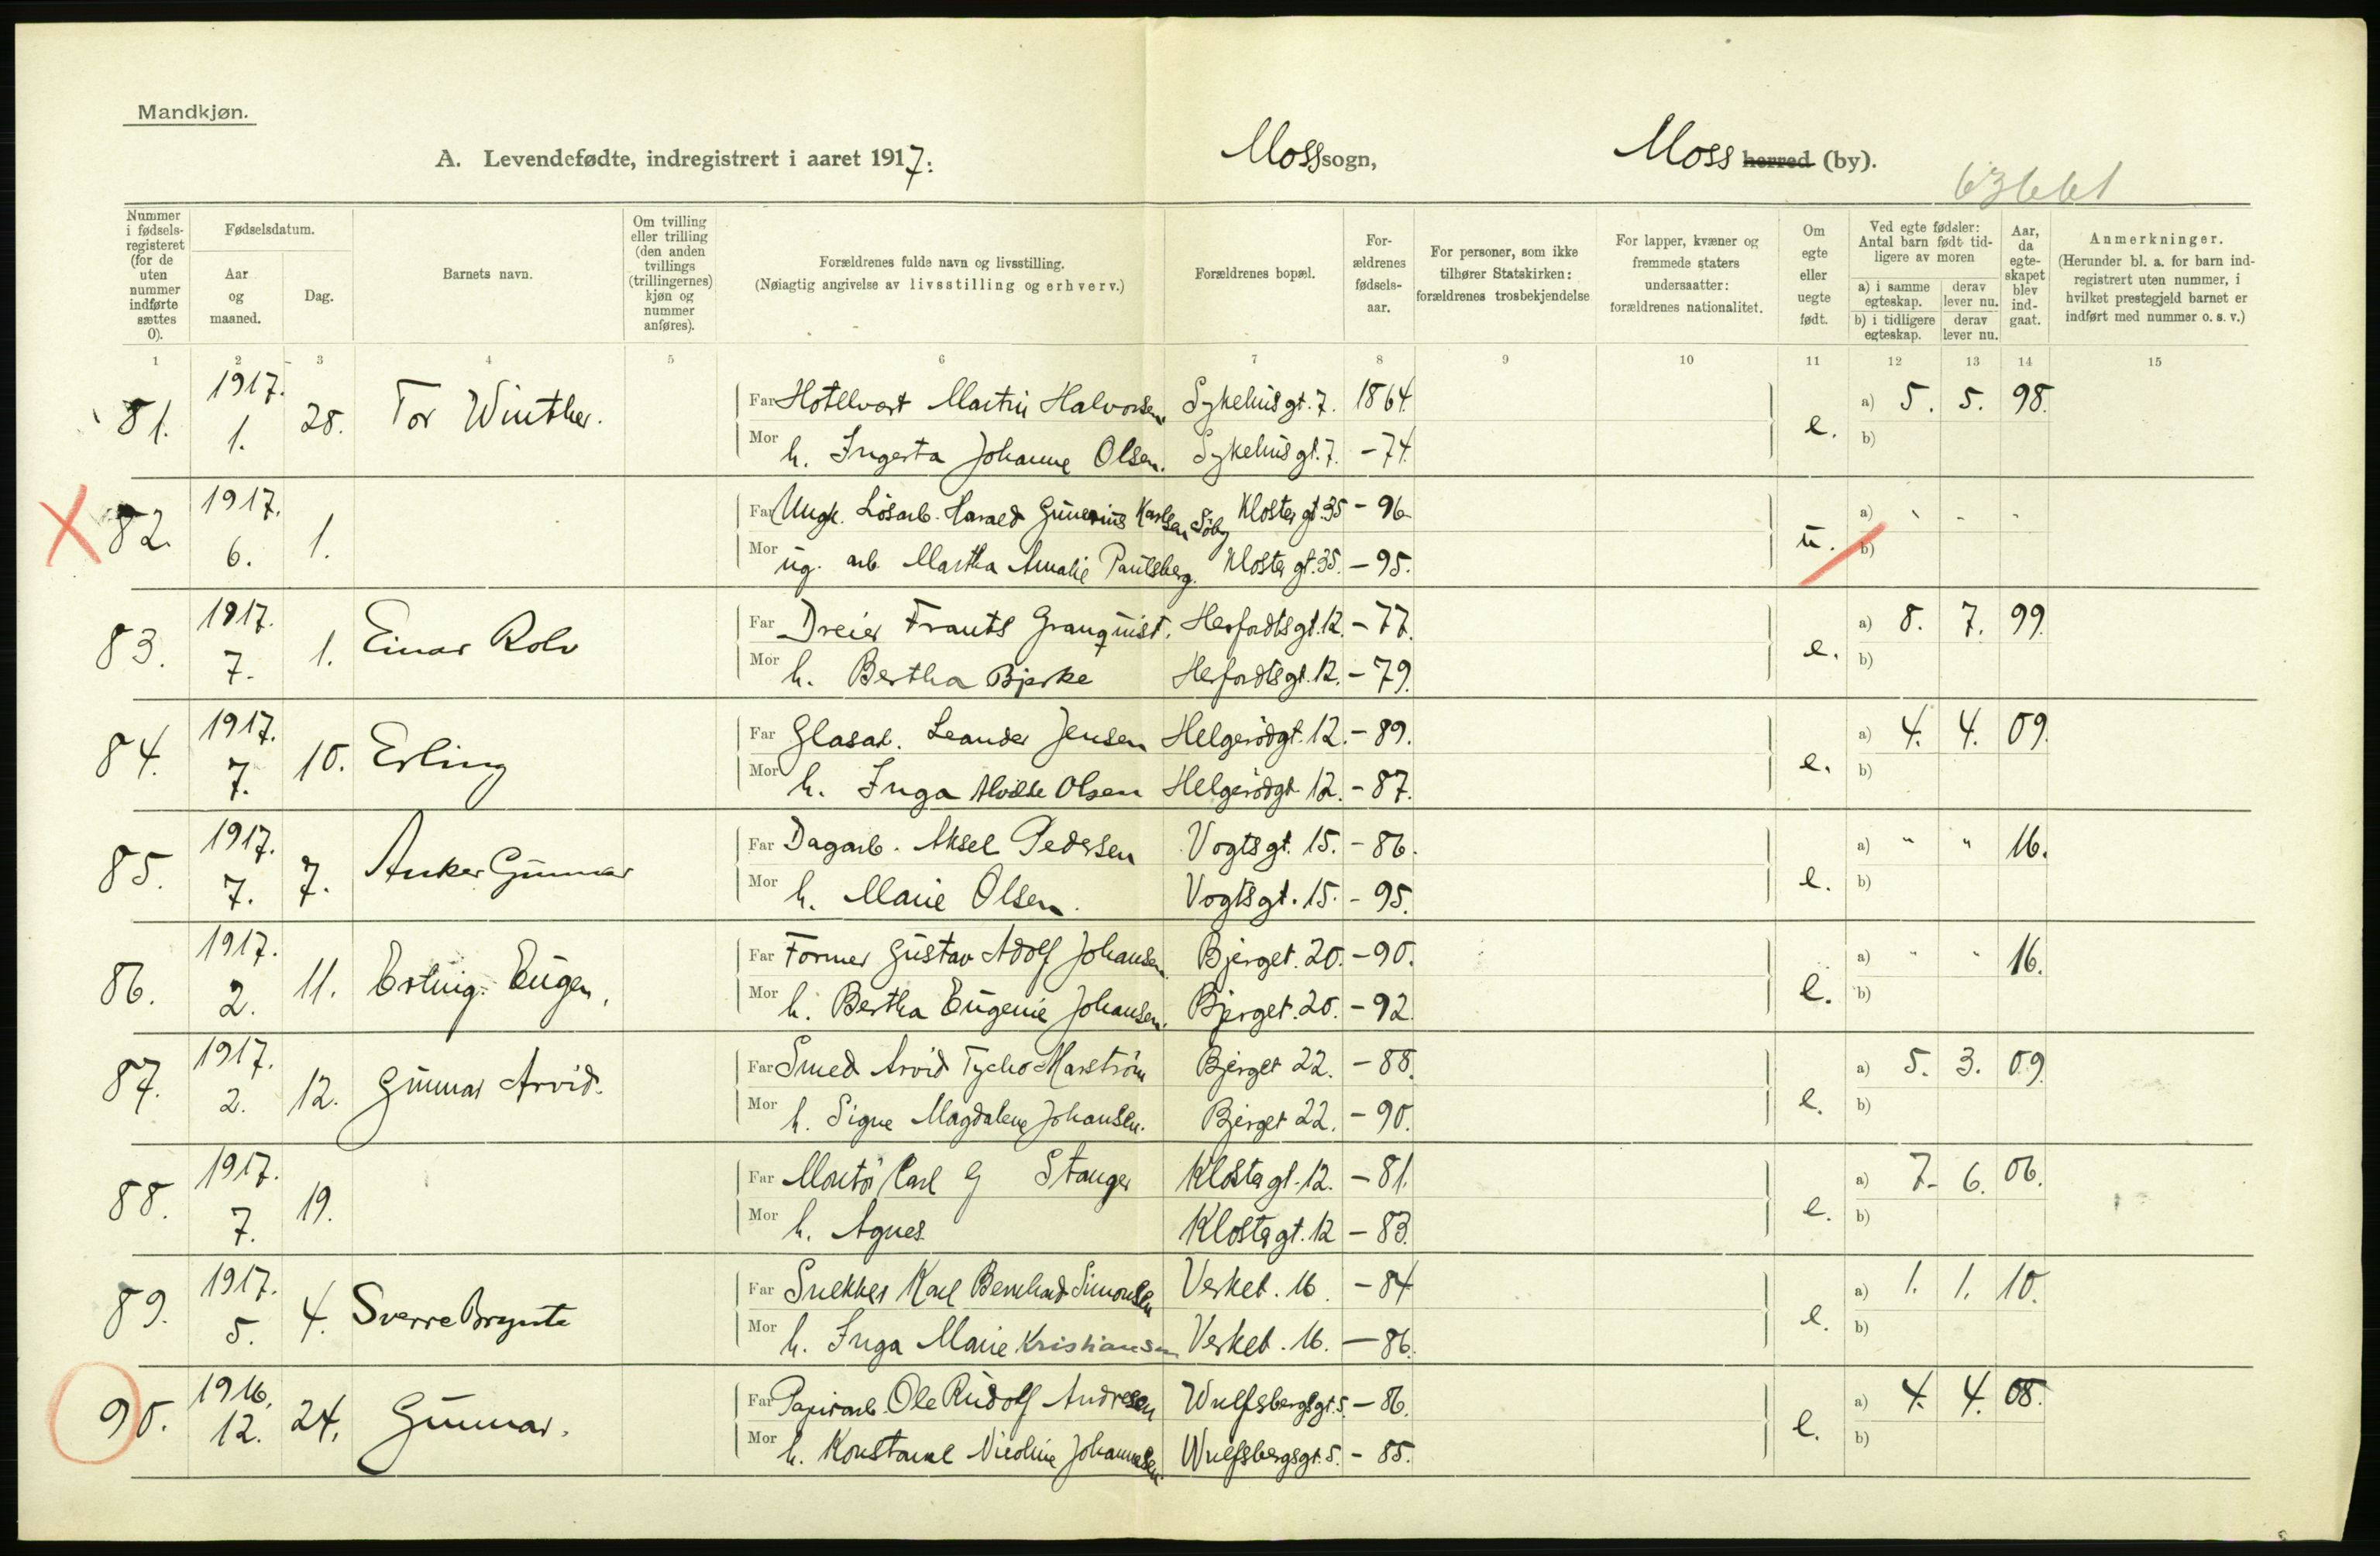 Mandkjøn.
A. Levendefødte, indregistrert i aaret 1917.
Moss sogn,
Moss herred (by).
63661
Nummer i fødselsregisteret (for de uten nummer indførte sættes 0).
Fødselsdatum.
Aar og maaned.
Dag.
Barnets navn.
Om tvilling eller trilling (den anden tvillings (trillingernes) kjøn og nummer anføres).
Forældrenes fulde navn og livsstilling.
(Nøiagtig angivelse av livsstilling og erhverv.)
Forældrenes bopæl.
Forældrenes fødselsaar.
For personer, som ikke tilhører Statskirken: forældrenes trosbekjendelse
For lapper, kvæner og fremmede staters undersaatter: forældrenes nationalitet.
Om egte eller uegte født.
Ved egte fødsler: Antal barn født tidligere av moren
a) i samme egteskap. derav lever nu.
b) i tidligere egteskap. derav lever nu.
Aar, da egteskapet blev indgaat.
Anmerkninger.
(Herunder bl. a. for barn indregistrert uten nummer, i hvilket prestegjeld barnet er indført med nummer o. s. v.)
1 2 3 4 5 6 7 8 9 10 11 12 13 14 15
81. 1917. 1. 28. Tor Winther.
Far Hotelvært Martin Halvorsen Sykehusgt. 7. 1864.
Mor h. Ingerta Johanne Olsen. Sykehusgt. 7. -74.
e. a) 5. 5. 98.
b)
82. 1917. 6. 1.
Far Ungk. Løsarb. Harald Gunerius Karlsen Söby Klostergt 35 -96
Mor ug. arb. Martha Amalie Paulsberg. Klostergt. 35. -95.
u. a) " - -
b)
83. 1917. 7. 1. Einar Rolv
Far Dreier Frants Granquist. Herfordtsgt. 12. -77.
Mor h. Bertha Bjerke Herfordtsgt. 12. -79.
e. a) 8. 7. 99.
b)
84. 1917. 7. 10. Erling
Far Glasarb. Leander Jensen Helgerödgt. 12. -89.
Mor h. Inga Olsen Helgerödgt. 12. -87.
e. a) 4. 4. 09.
b)
85. 1917. 7. 7. Anker Gunnar
Far Dagarb. Aksel Pedersen Vogtsgt. 15. -86.
Mor h. Marie Olsen. Vogtsgt. 15. -95.
e. a) " " 16.
b)
86. 1917. 2. 11. Eugen.
Far Former Gustav Adolf Johansen Bjerget. 20. -90.
Mor h. Bertha Eugenie Johansen. Bjerget. 20. -92.
e. a) " " 16.
b)
87. 1917. 2. 12. Gunnar Arvid.
Far Smed Arvid Tycho Marström Bjerget 22. -88.
Mor h. Signe Magdalene Johansen. Bjerget 22. -90.
e. a) 5. 3. 09.
b)
88. 1917. 7. 19.
Far Montö Carl G Stanger Klostergt. 12. -81.
Mor h. Agnes Klostergt. 12 -83.
e. a) 7. 6. 06.
b)
89. 1917. 5. 4. Sverre
Far Snekker Karl Bernhard Simonsen Verket. 16. -84
Mor h. Inga Marie Kristiansen Verket. 16. -86.
e. a) 1. 1. 10.
b)
90. 1916. 12. 24. Gunnar.
Far Papirarb. Ole Rudolf Andresen Wulfsbergsgt. 5. -86.
Mor h. Konstance Nicoline Johannesen Wulfsbergsgt. 5. -85.
e. a) 4. 4. 08.
b)